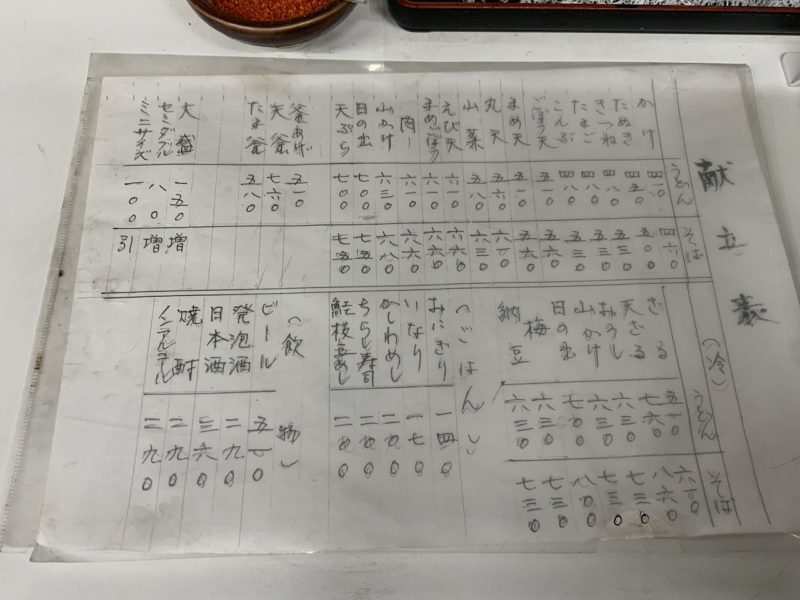 献立表
うどん そば
かけ 四一〇 四六〇
たぬき 四五〇 五〇〇
きつね 四八〇 五三〇
たまご 四八〇 五三〇
こんぶ 四八〇 五三〇
ごぼう天 五一〇 五六〇
まめ天 五一〇 五六〇
丸天 五六〇 六一〇
山菜 五八〇 六三〇
えび天 六一〇 六六〇
まめごぼう 六一〇 六六〇
肉 六一〇 六六〇
山かけ 六三〇 六八〇
日の出 七〇〇 七五〇
天ぷら 七〇〇 七五〇
釜あげ 五一〇
天釜 七六〇
たま釜 五八〇
大盛 一五〇 増
セミダブル 八〇 増
ミニサイズ 一〇〇 引
(冷) うどん そば
ざる 五一〇 六一〇
天ざる 七六〇 八六〇
おろし 六三〇 七三〇
山かけ 六三〇 七三〇
日の出 七〇〇 八〇〇
梅 六三〇 七三〇
納豆 六三〇 七三〇
(ごはん)
おにぎり 一四〇
いなり 一七〇
かしわめし 二〇〇
ちらし寿司 二〇〇
鮭枝豆めし 二〇〇
(飲物)
ビール 五一〇
発泡酒 二九〇
日本酒 三六〇
焼酎 二九〇
ノンアルコール 二九〇